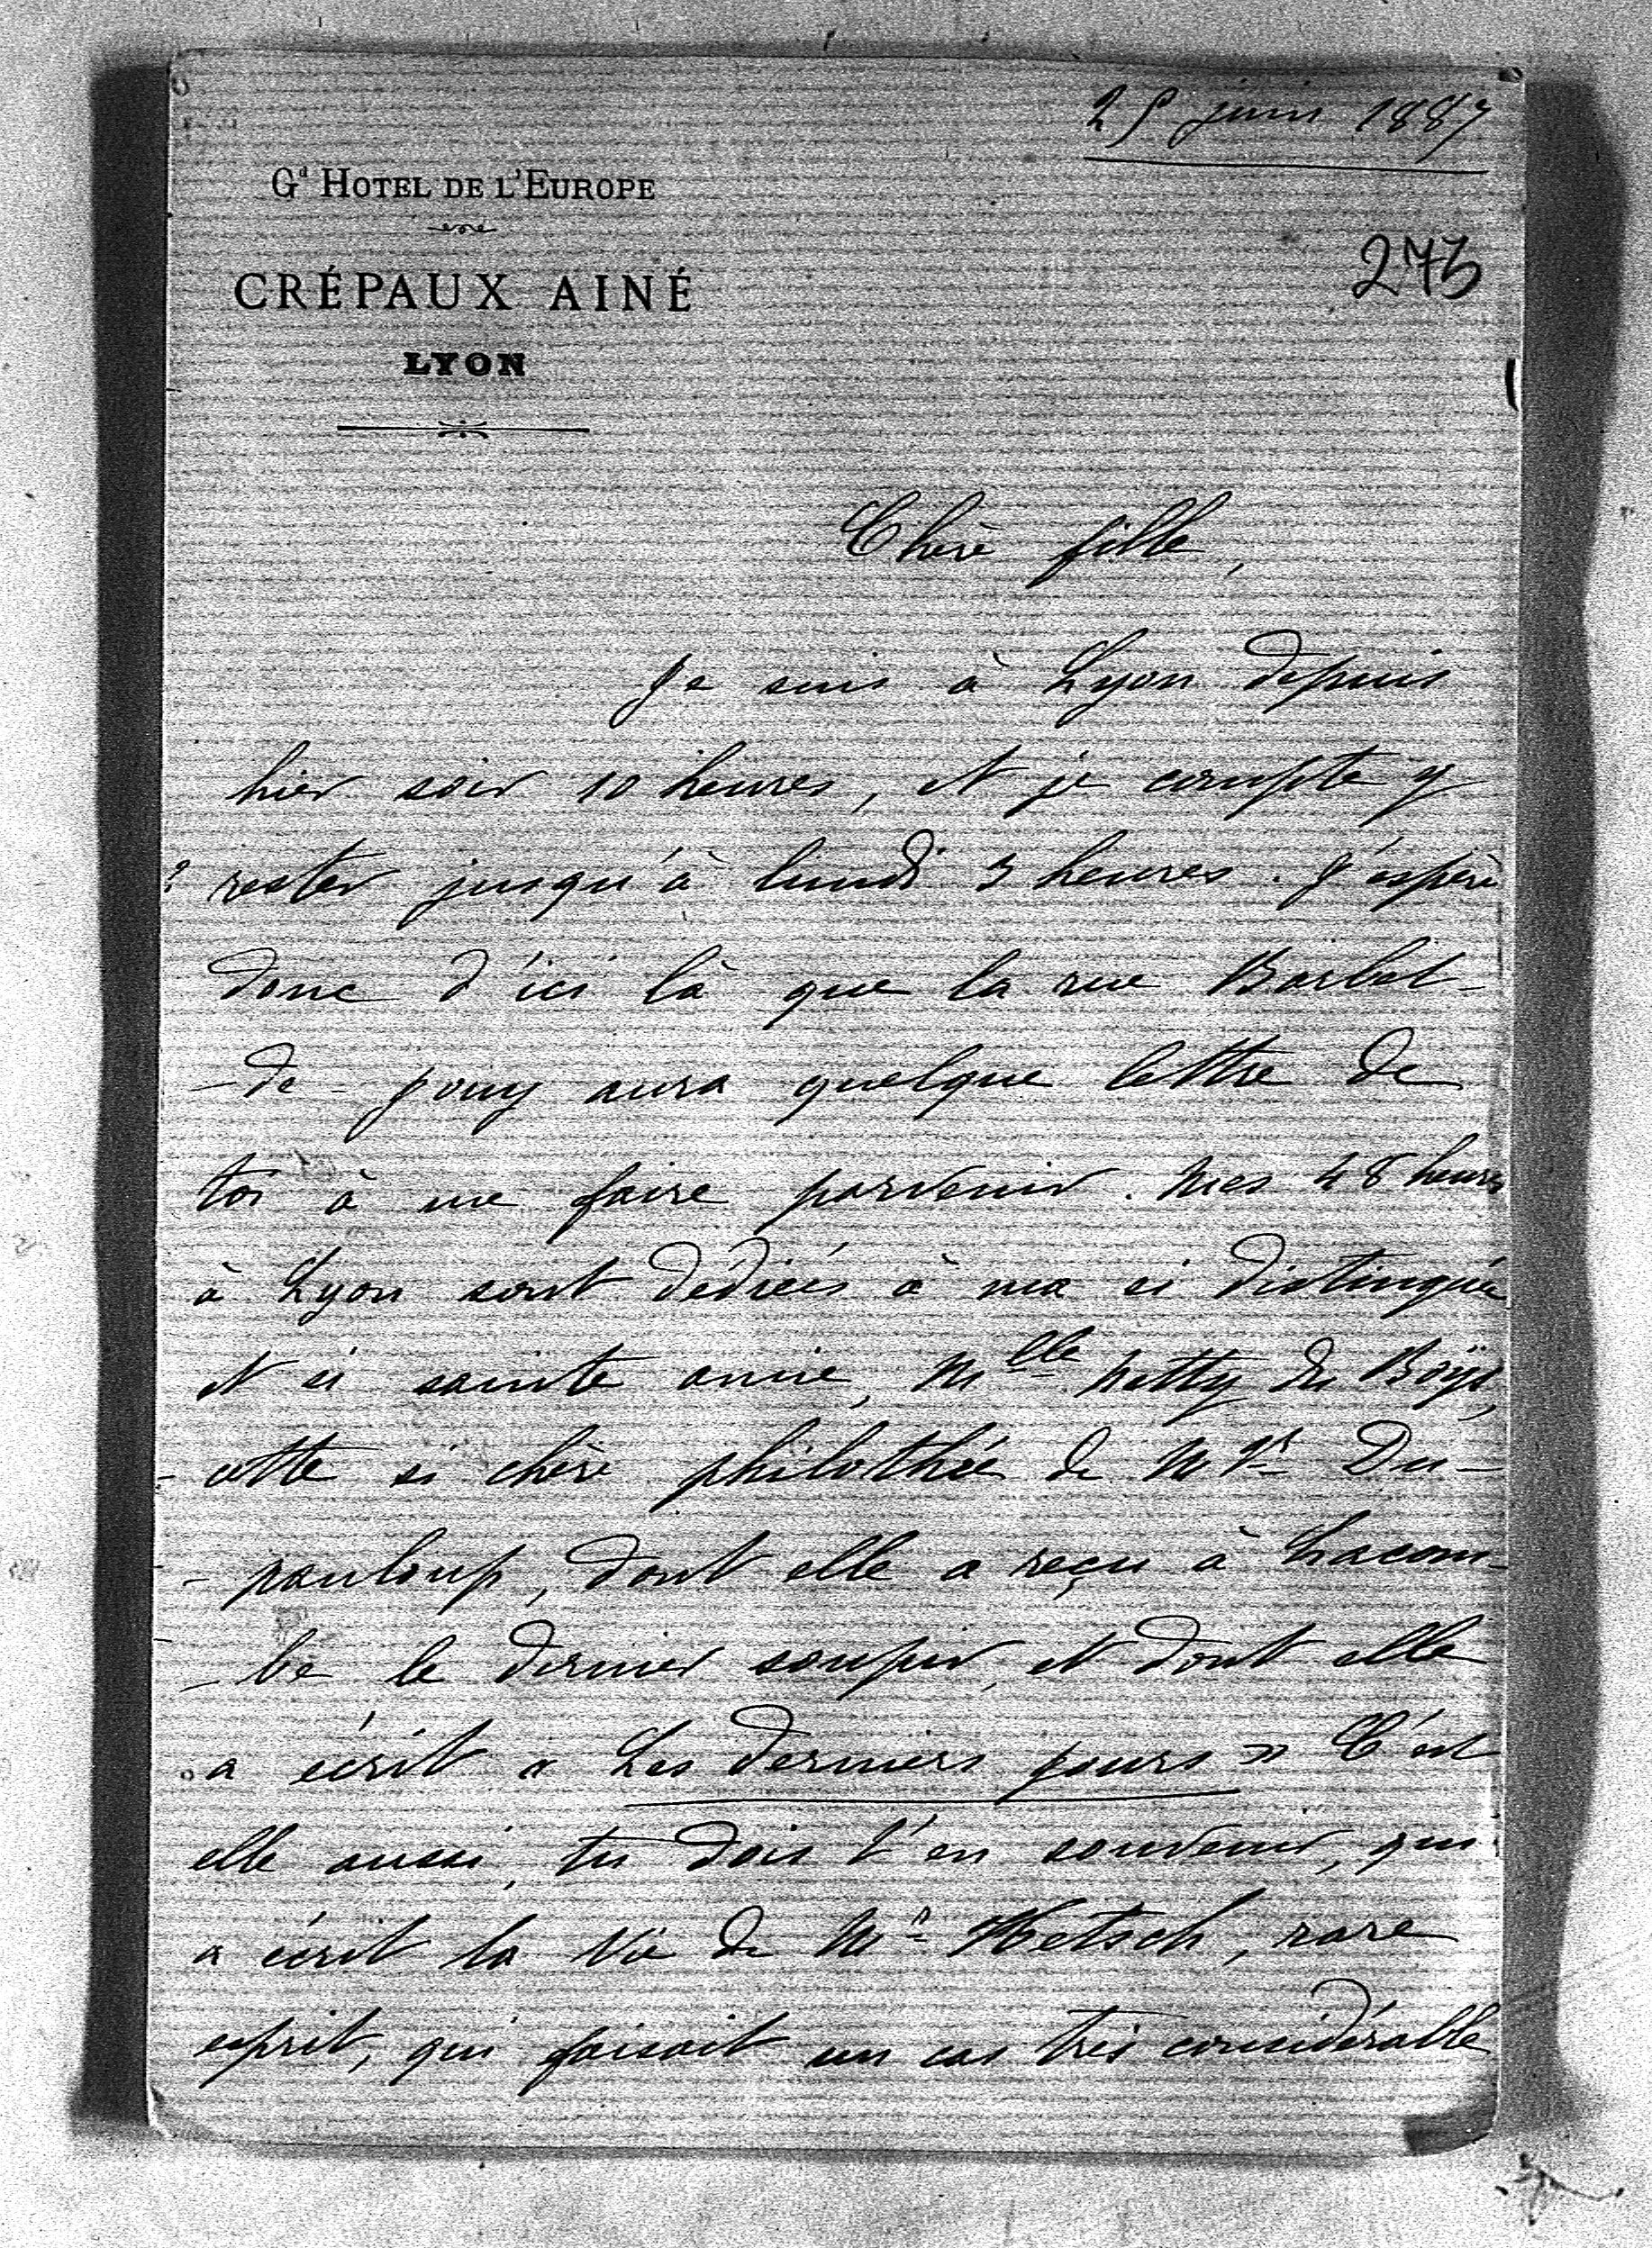 25 juin 1887
Gd HOTEL DE L'EUROPE
273
CRÉPAUX AINÉ
LYON
Chère fille,
Je suis à Lyon depuis
hier soir 10 heures, et je compte y
rester jusqu'à lundi 3 heures. J'espère
donc d'ici là que la rue Barbet-
-de-Jouy aura quelque lettre de
toi à me faire parvenir. Mes 48 heures
à Lyon sont dédiées à ma si distinguée
et si sainte amie, Mlle Netty du Boÿs,
cette si chère philothée de Mgr Du-
-panloup, dont elle a reçu à Lacom-
-be le dernier soupir, et dont elle
a écrit « Les derniers jours » C'est
elle aussi, tu dois t'en souvenir, qui
a écrit la Vie de Mr Hetsch, rare
esprit, qui faisait un cas très considérable